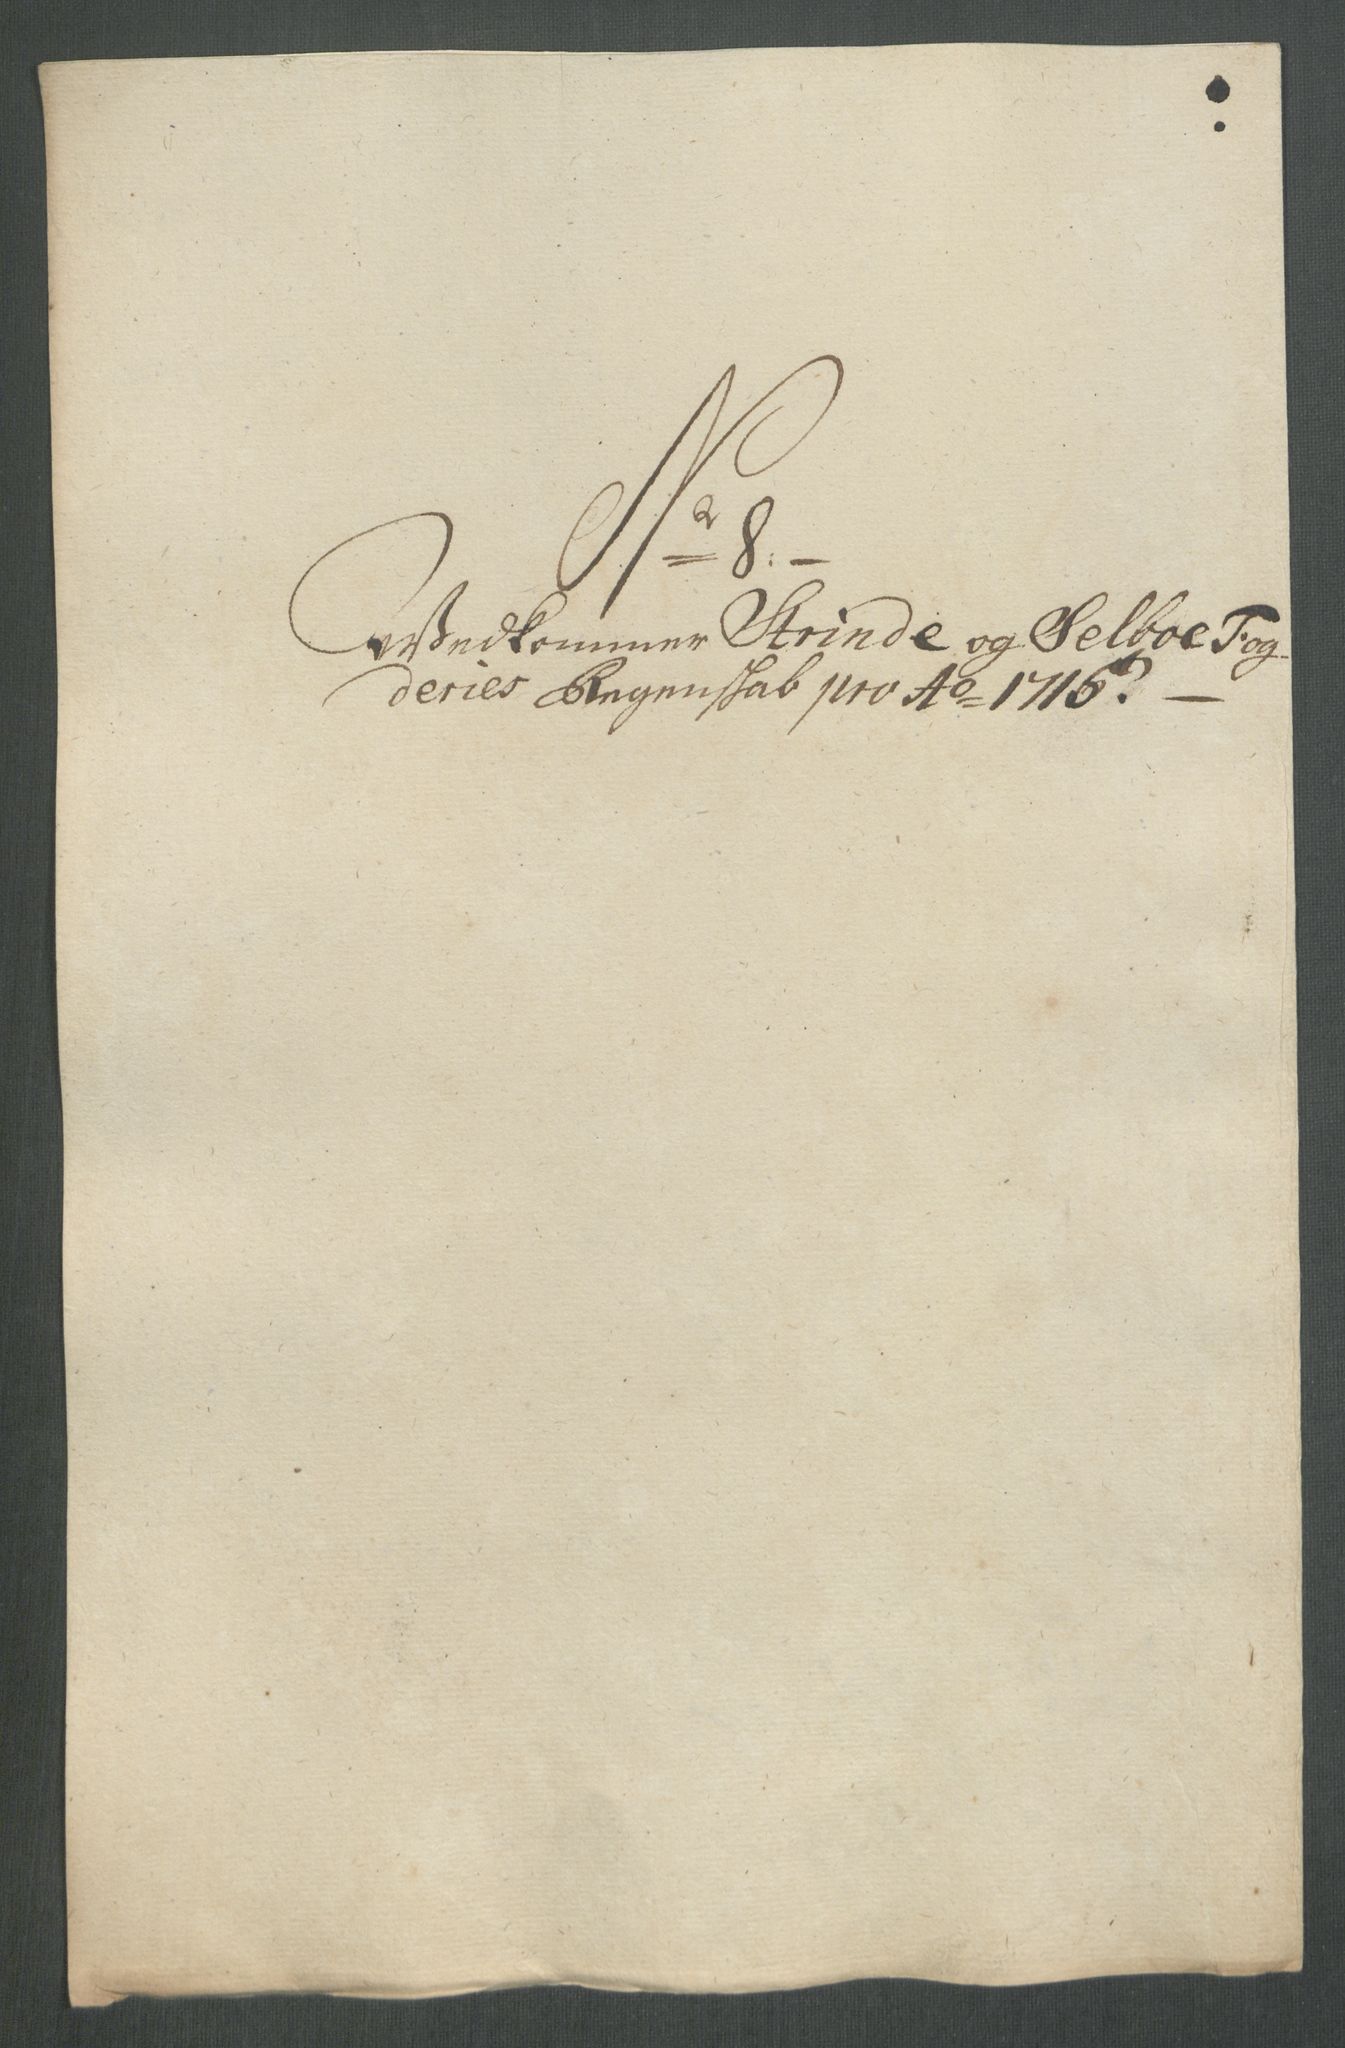 Nr 8.
Vedkommer Strinde og Selboe Fog-
deries Regenskab pro Ao 1716.